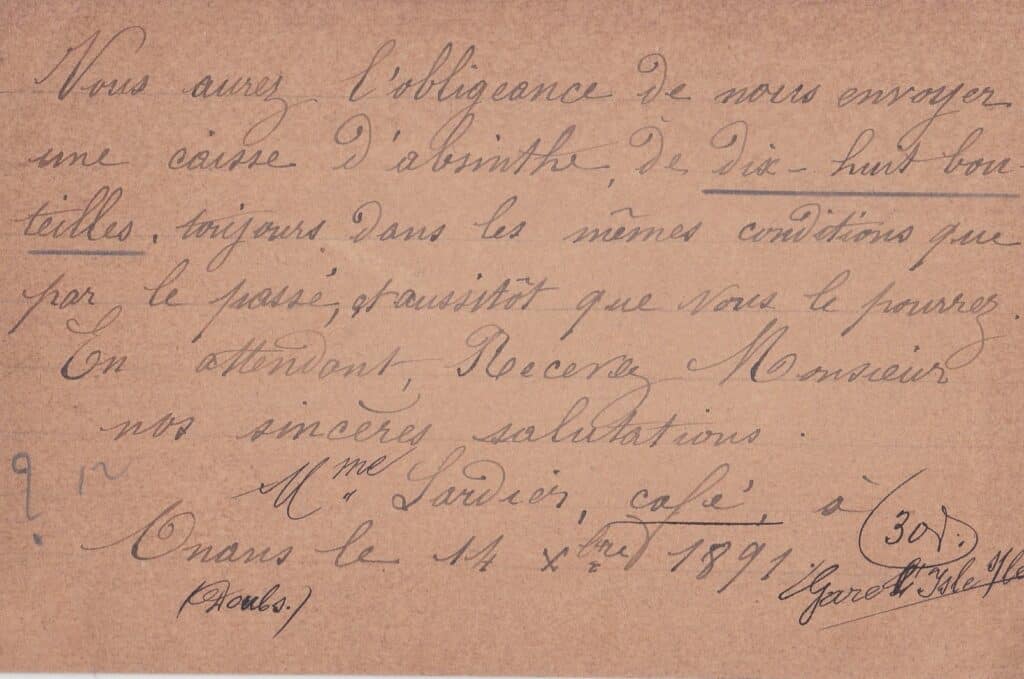 Vous aurez l'obligeance de nous envoyer
une caisse d'absinthe, de dix-huit bou-
teilles, toujours dans les mêmes conditions que
par le passé, et aussitôt que vous le pourrez.
En attendant, Recevez Monsieur
nos sincères salutations.
Mme Sardier, café, à
Onans le 14 Xbre 1891.
(Doubs.)
(30 f.)
Gare l'Isle s/le